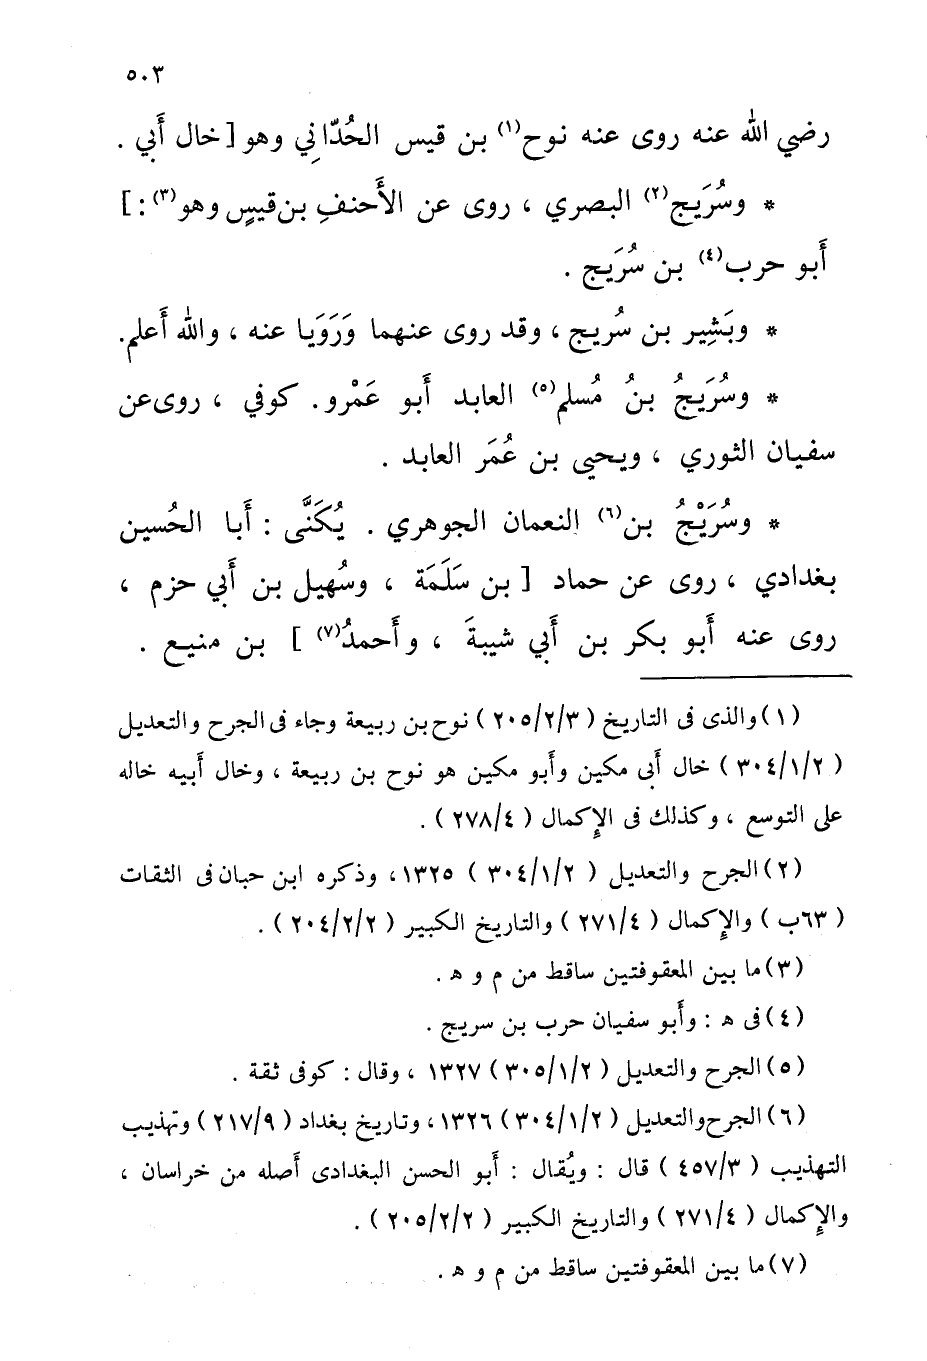 ٥٠٣
رضي الله عنه روى عنه نوح(١) بن قيس الحُدّاني وهو [ خال أَبي .
* وسُرَيج(٢) البصري ، روى عن الأَحنفِ بن قيسٍ وهو(٣) : ]
أَبو حرب(٤) بن سُرَيج .
* وبَشِير بن سُريج ، وقد روى عنهما وَرَوَيا عنه ، والله أَعلم.
* وسُرَيجُ بنُ مُسلم(٥) العابد أَبو عَمْرو. كوفي ، روى عن
سفيان الثوري ، ويحيى بن عُمَر العابد .
* وسُرَيْجُ بن(٦) النعمان الجوهري . يُكَنَّى : أَبا الحُسين
بغدادي ، روى عن حماد [ بن سَلَمَة ، وسُهيل بن أَبي حزم ،
روى عنه أَبو بكر بن أَبي شيبةَ ، وأَحمدُ(٧) ] بن منيع .
(١) والذى فى التاريخ ( ٢٠٥/٢/٣ ) نوح بن ربيعة وجاء فى الجرح والتعديل
( ٣٠٤/١/٢ ) خال أَبى مكين وأَبو مكين هو نوح بن ربيعة ، وخال أَبيه خاله
على التوسع ، وكذلك فى الإِكمال ( ٢٧٨/٤ ) .
(٢) الجرح والتعديل ( ٣٠٤/١/٢ ) ١٣٢٥ ، وذكره ابن حبان فى الثقات
( ٦٣ب ) والإِكمال ( ٢٧١/٤ ) والتاريخ الكبير ( ٢٠٤/٢/٢ ) .
(٣) ما بين المعقوفتين ساقط من م و ه .
(٤) فى ه : وأَبو سفيان حرب بن سريج .
(٥) الجرح والتعديل ( ٣٠٥/١/٢ ) ١٣٢٧ ، وقال : كوفى ثقة .
(٦) الجرح والتعديل ( ٣٠٤/١/٢ ) ١٣٢٦ ، وتاريخ بغداد ( ٢١٧/٩ ) وتهذيب
التهذيب ( ٤٥٧/٣ ) قال : ويُقال : أَبو الحسن البغدادى أصله من خراسان ،
والإِكمال ( ٢٧١/٤ ) والتاريخ الكبير ( ٢٠٥/٢/٢ ) .
(٧) ما بين المعقوفتين ساقط من م و ه .